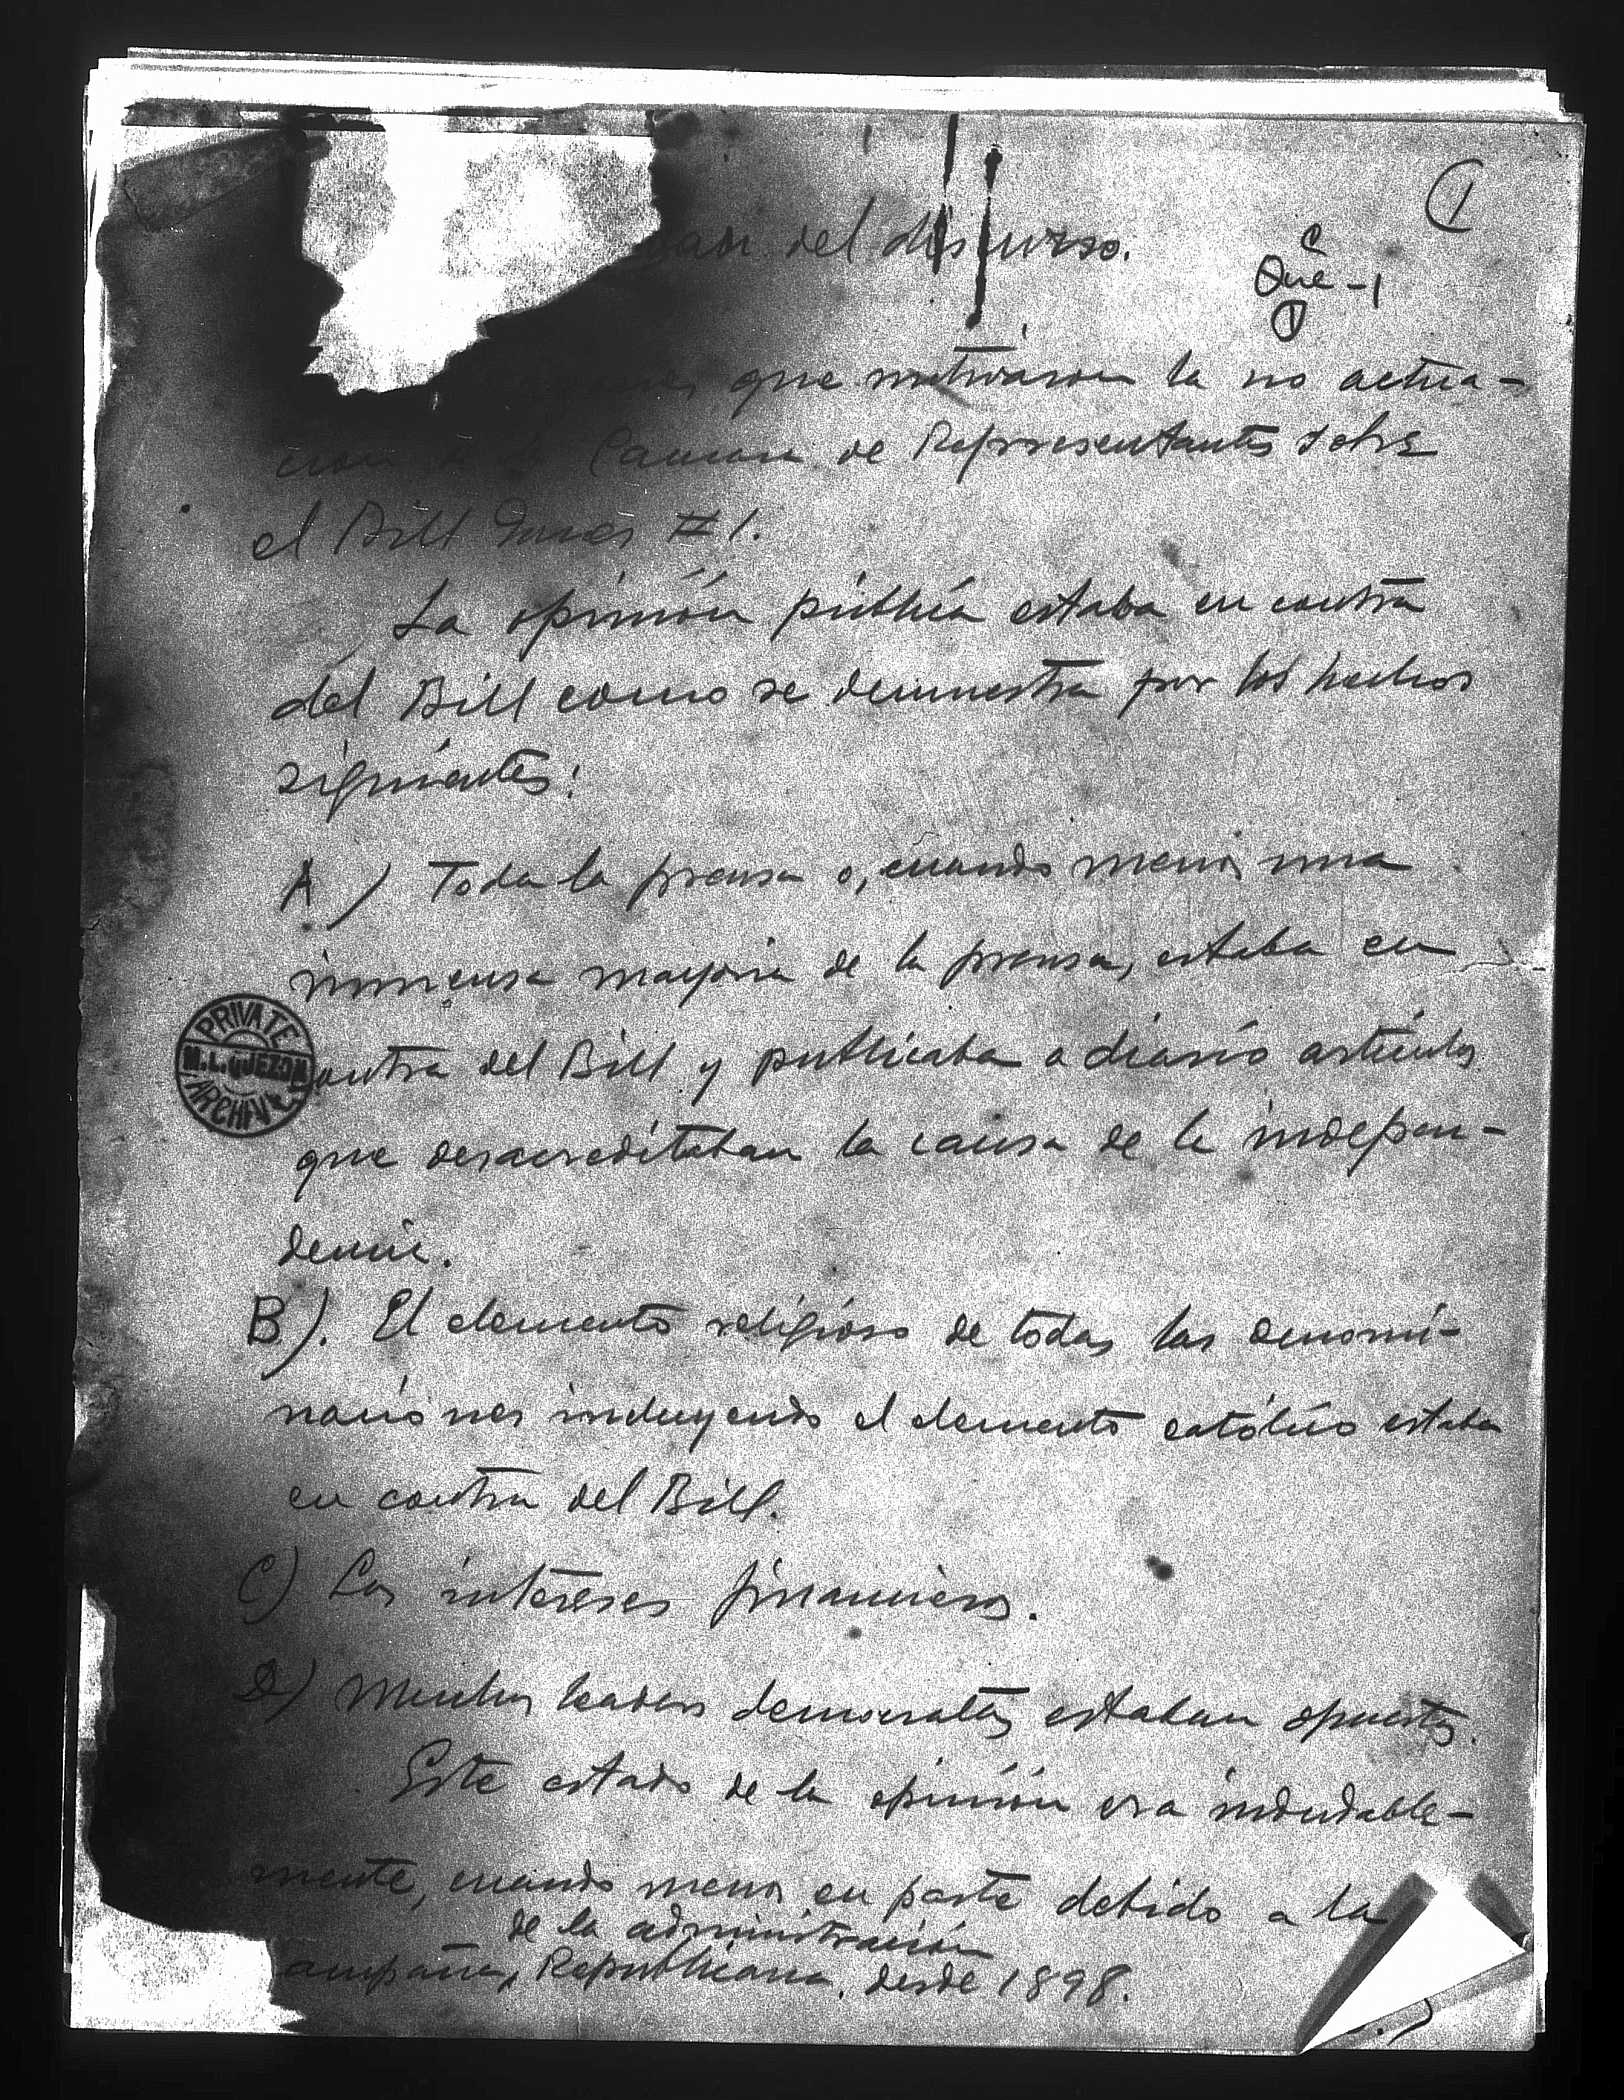 ①
del discurso.
C
Que - 1
①
que motivaron la no actua-
cion de la Camara de Representantes sobre
el Bill Jones # 1.
La opinión pública estaba en contra
del Bill como se demuestra por los hechos
siguientes:
A) Toda la prensa o, cuando menos una
inmensa mayoria de la prensa, estaba en
contra del Bill y publicaba a diario artículos
que desacreditaban la causa de la indepen-
dencia.
B). El elemento religioso de todas las denomi-
naciones incluyendo el elemento católico estaba
en contra del Bill.
C) Los intereses financieros.
D) Muchos leaders democratas estaban opuestos.
Este estado de la opinión era indudable-
mente, cuando menos en parte debido a la
de la administración
campaña, Republicana, desde 1898.
PRIVATE
M.L. QUEZON
ARCHIVES